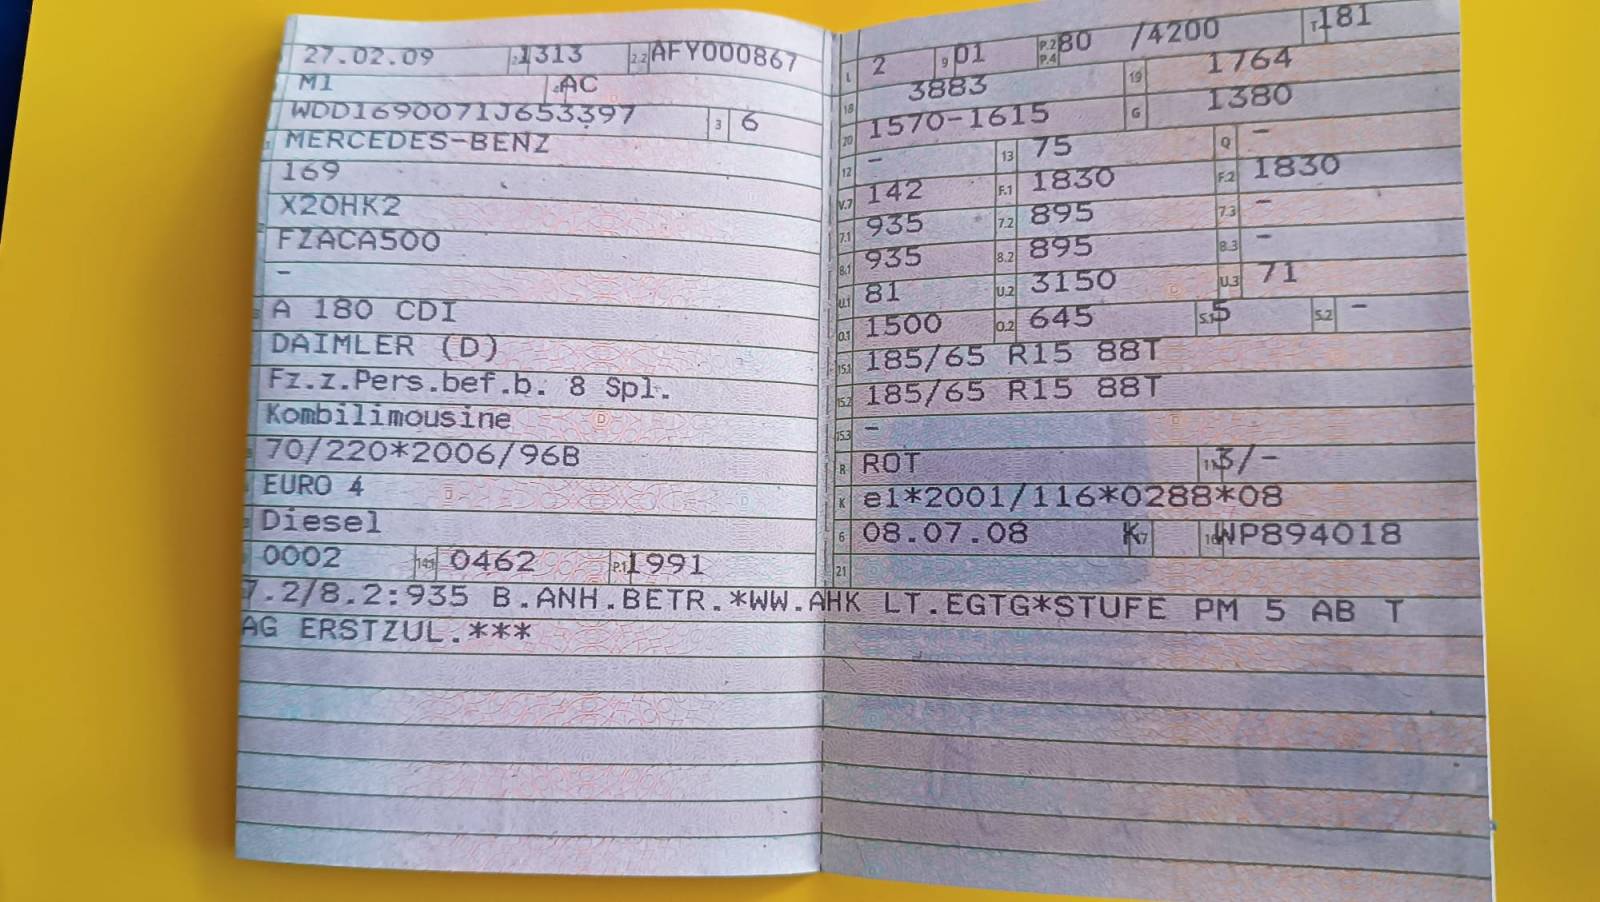 27.02.09 2.1 1313 2.2 AFY000867
M1 4 AC
WDD1690071J653397 3 6
MERCEDES-BENZ
169
X20HK2
FZACA500
-
A 180 CDI
DAIMLER (D)
Fz.z.Pers.bef.b. 8 Spl.
Kombilimousine
70/220*2006/96B
EURO 4
Diesel
0002 14.1 0462 P.1 1991
L 2 9 01 P.2 P.4 80 /4200 T 181
18 3883 19 1764
20 1570-1615 G 1380
12 - 13 75 Q -
V.7 142 F.1 1830 F.2 1830
7.1 935 7.2 895 7.3 -
8.1 935 8.2 895 8.3 -
U.1 81 U.2 3150 U.3 71
O.1 1500 O.2 645 S.1 5 S.2 -
15.1 185/65 R15 88T
15.2 185/65 R15 88T
15.3 -
R ROT 11 3/-
K e1*2001/116*0288*08
6 08.07.08 17 K 16 WP894018
21
7.2/8.2:935 B.ANH.BETR.*WW.AHK LT.EGTG*STUFE PM 5 AB T
AG ERSTZUL.***